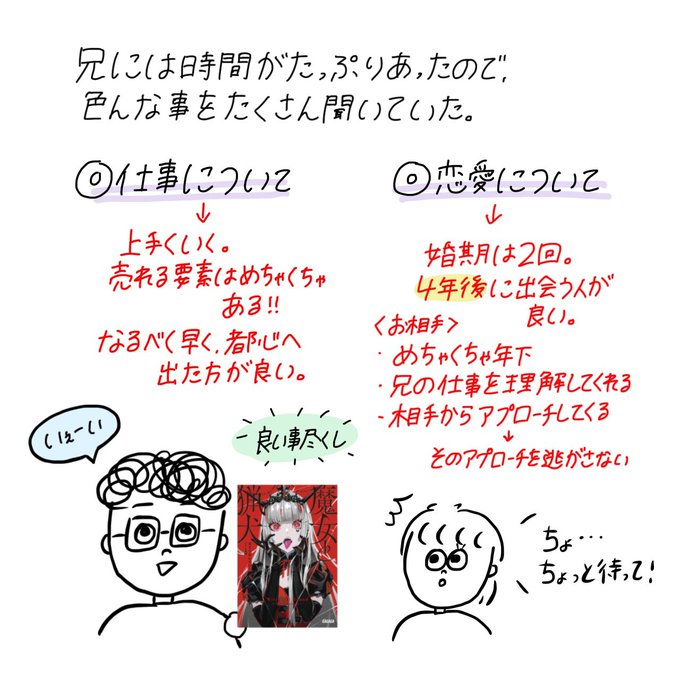 兄には時間がたっぷりあったので、
色んな事をたくさん聞いていた。
◎仕事について
↓
上手くいく。
売れる要素はめちゃくちゃ
ある!!
なるべく早く、都心へ
出た方が良い。
◎恋愛について
↓
婚期は2回。
4年後に出会う人が
良い。
<お相手>
・めちゃくちゃ年下
・兄の仕事を理解してくれる
・相手からアプローチしてくる
↓
そのアプローチを逃がさない
いぇーい
良い事尽くし
魔女と
猟犬
ちょ…
ちょっと待って!